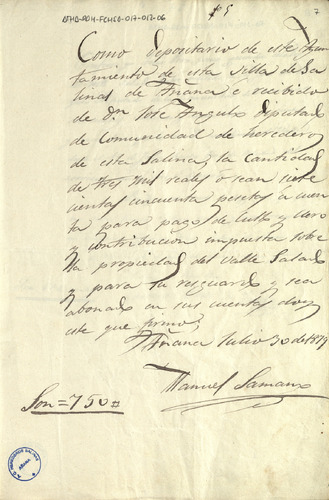 ATHB-DOH-FCHSB-017-012-06
nº 5
7
Como depositario de este Ayun
tamiento de esta villa de Sa
linas de Añana e recibido
de Dn Jose Angulo Diputado
de Comunidad de herederos
de esta Salina, la cantidad
de tres mil reales o sean siete
cientas cincuenta pesetas a cuen
ta para pago de Culto y Clero
y contribucion impuesta sobre
la propiedad del Valle Salado
y para su resguardo y sea
abonado en sus cuentas doy
este que firmo,
Añana Julio 30 de 1879
Manuel Samano
Son = 750 =